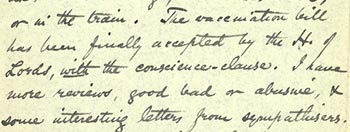 or in the train. The vaccination bill
has been finally accepted by the H. of
Lords, with the conscience-clause. I have
more reviews, good bad or abusive, &
some interesting letters from sympathisers.